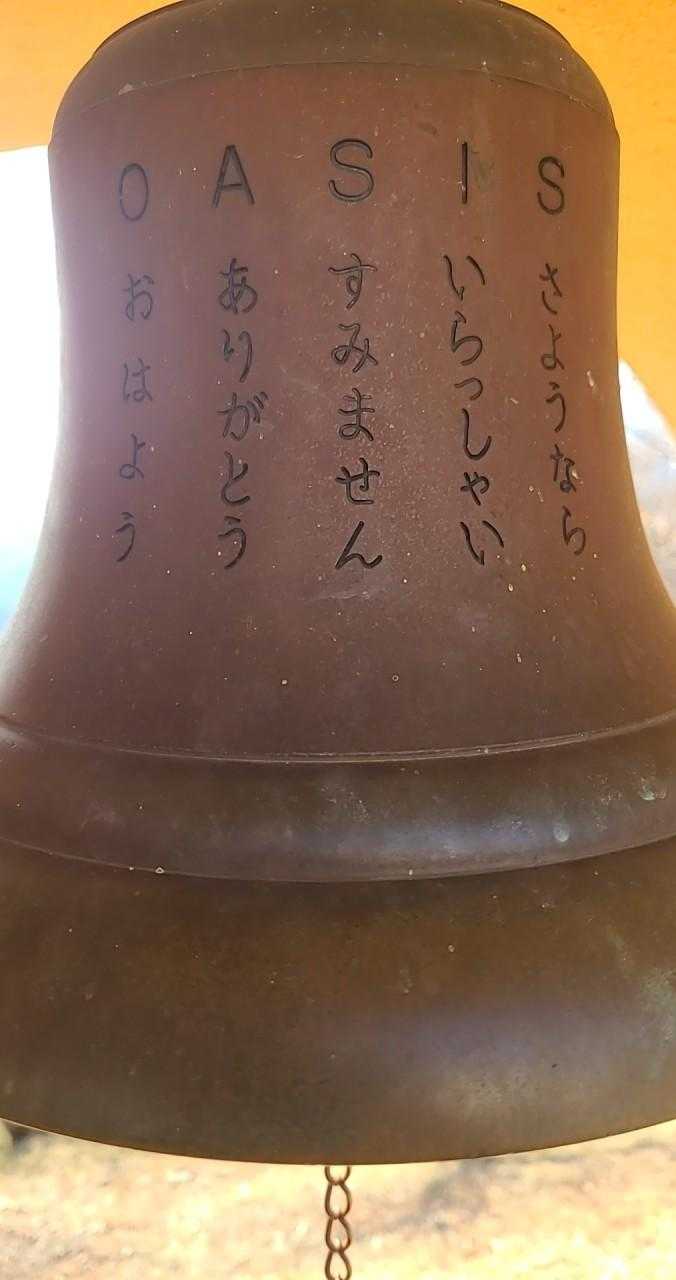 O A S I S
おはよう
ありがとう
すみません
いらっしゃい
さようなら